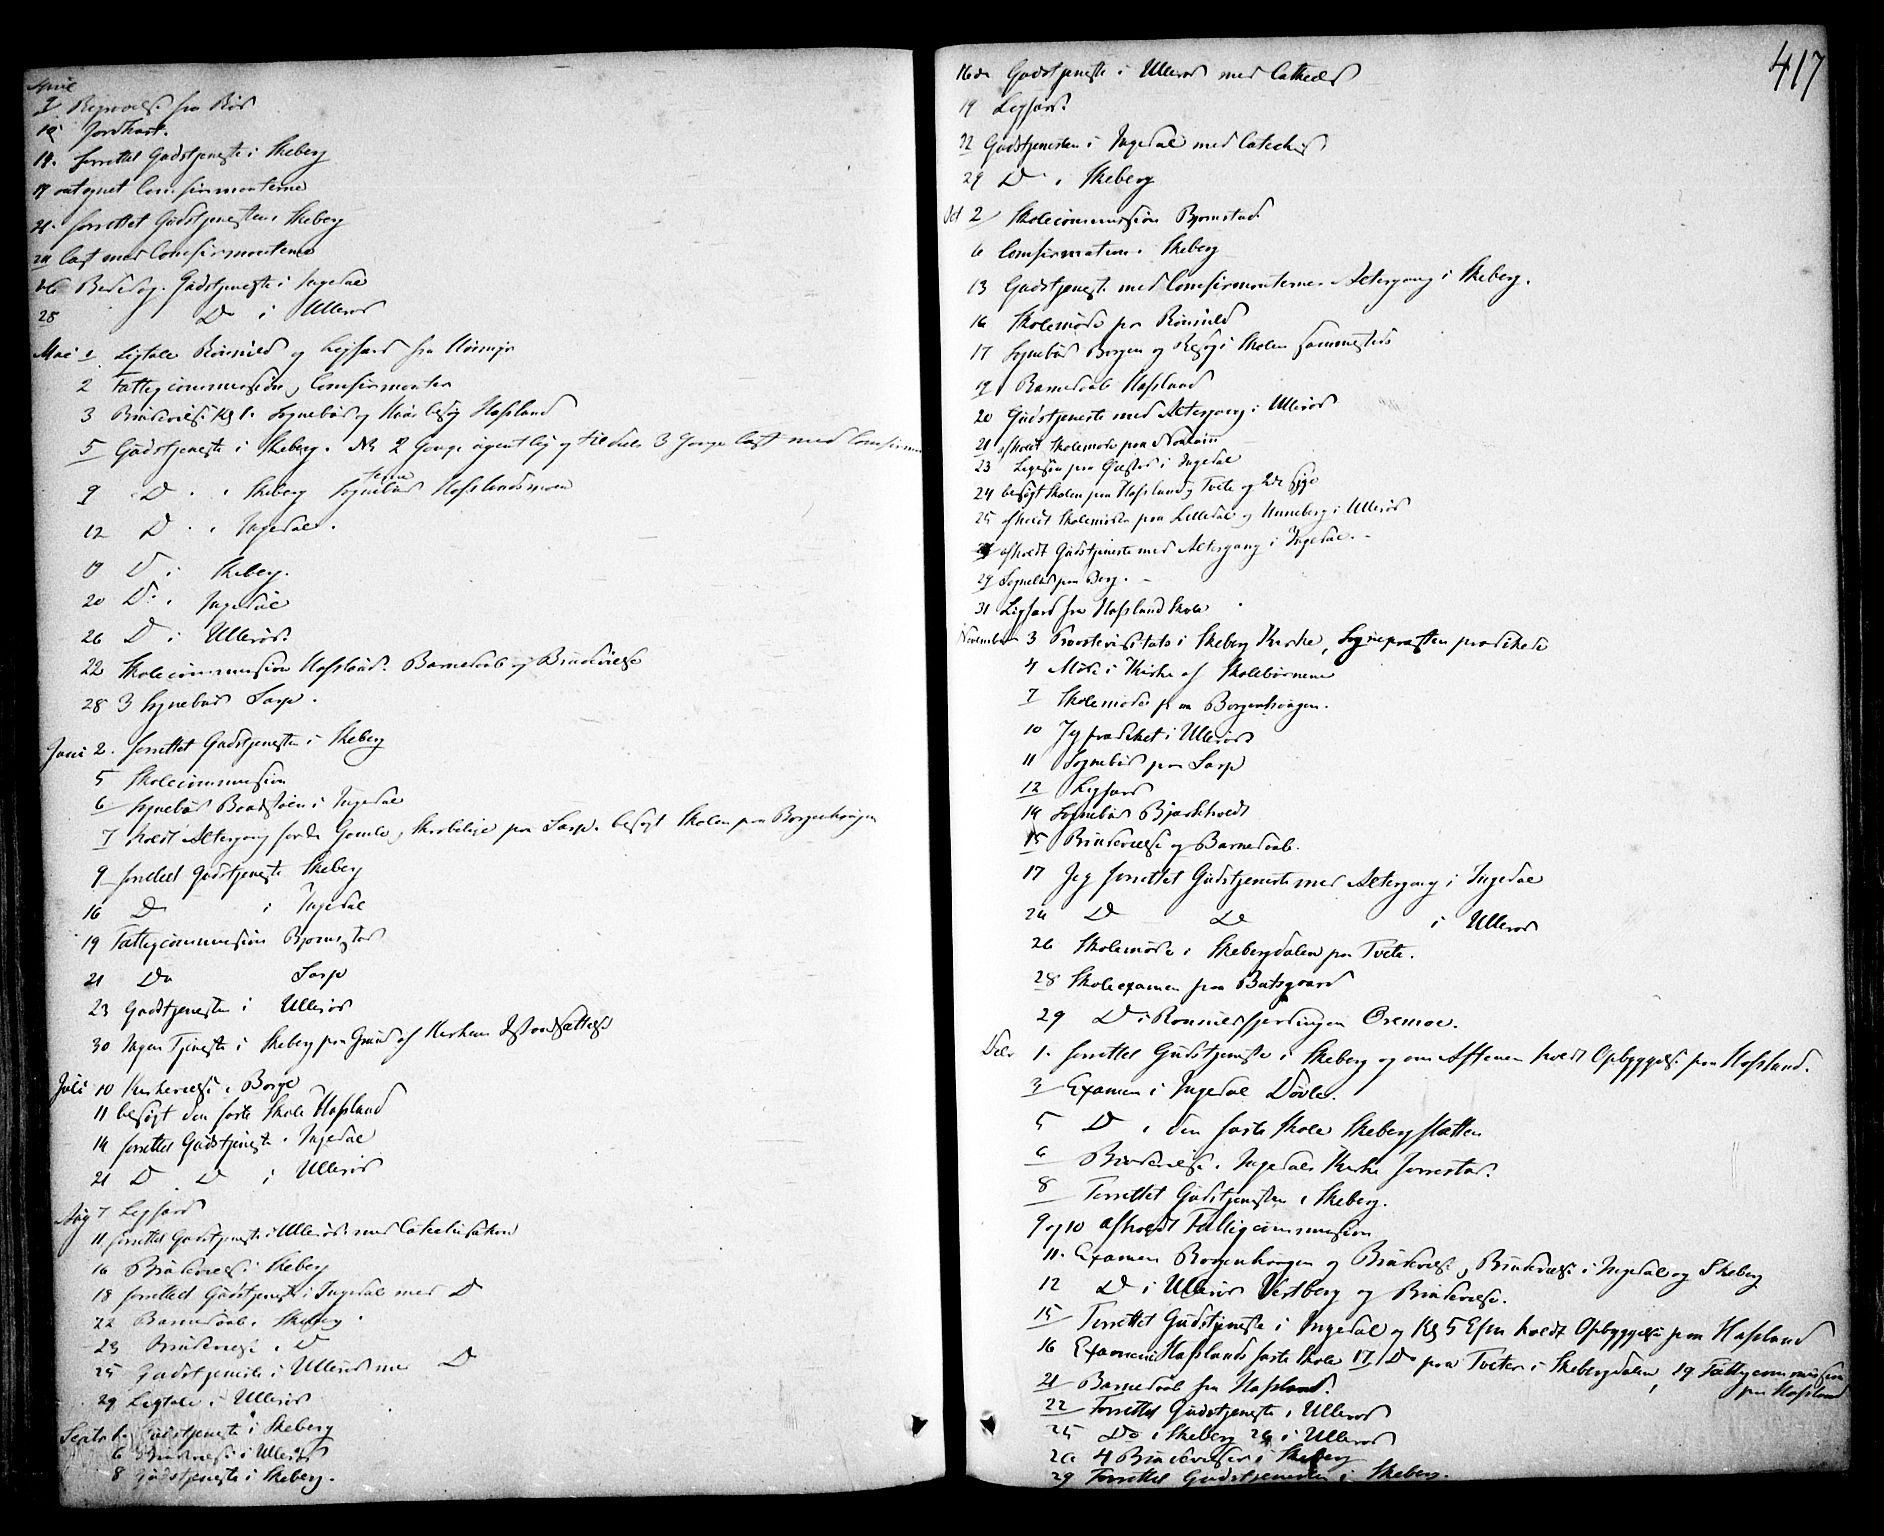 April
9 Begravelse fra Röd
12 Jordkast.
14. forrettet Gudstjeneste i Skeberg
19 antegnet Confirmanterne
21. forrettet Gudstjenesten i Skeberg
24 læst med Confirmanterne
26 Bededag. Gudstjeneste i Ingedal
28 Do i Ullerød
Mai 1 Ligtale Rönnild og Ligfærd fra
2 Fattigcommission, Confirmanter
3 Brudevielse Kl 1. Sognebud og besøg Hafslund
5 Gudstjeneste i Skeberg. NB 2 Gange ugentlig og tildels 3 Gange læst med Confirman
terne
9 D i Skeberg Sognebud Hafslundsmoen
12 D i Ingedal.
19 D i Skeberg.
20 D. i Ingedal
26 D i Ullerød.
22 Skolecommission Hafslund. Barnedaab og Brudevielse
28 3 Sognebud Sarp.
Juni 2. forrettet Gudstjenesten i Skeberg
5 Skolecommission
6 Sognebud i Ingedal
7 holdt Altergang for de Gamle, Skrøbelige paa Sarp. besøgt Skolen paa Borgenhaugen
9 forrettet Gudstjeneste Skeberg
16 D i Ingedal
19 Fattigcommission Bjørnstad
21 Do Sarp
23 Gudstjenesten i Ullerød
30 Ingen Tjeneste i Skeberg paa Grund af Kirkens Istandsættelse
Juli 10 Kirkevielse i Borge
11 besøgt den faste Skole Hafslund
14 forrettet Gudstjeneste i Ingedal
21 D D i Ullerød
Aug 7 Ligfærd
11 forrettet Gudstjeneste i Ullerød med Catechisation
16 Brudevielse i Skeberg
18 forrettet Gudstjeneste i Ingedal med D
22 Barnedaab i Skeberg.
23 Brudevielse i D
25 Gudstjeneste i Ullerød med D
29 Ligtale i Ullerød
Septr 1. Gudstjeneste i Skeberg
6 Brudevielse i Ullerød
8 Gudstjeneste i Skeberg.
417
16de Gudstjeneste i Ullerød med Catheches
19 Ligfærd.
22 Gudstjenesten i Ingedal med Catechis
29 D i Skeberg
Oct 2 Skolecommission Bjørnstad.
6 Confirmation i Skeberg
13 Gudstjeneste med Confirmanternes Altergang i Skeberg.
16 Skolemøde paa Rönnild
17 Sognebud Borgen og Besøg i Skolen sammesteds
19 Barnedaab Hafslund
20 Gudstjeneste med Altergang i Ullerød
21 afholdt Skolemøde paa
23 paa i Ingedal
24 besøgt Skolen paa Hafslund, Tvete og 2de Syge
25 afholdt Skolemøder paa Lilledal og Unneberg i Ullerød
27 afholdt Gudstjeneste med Altergang i Ingedal.
29 Sognebud paa Borg.
31 Ligfærd fra Hafslund Skole
November 3 Provstevisitats i Skeberg Kirke, Sognepræsten prædikede
4 Møde i Kirken af Skolebørnene
7 Skolemøde paa Borgenhaugen.
10 Jeg prædiket i Ullerød
11 Sognebud paa Sarp
12 Ligfærd
14 Sognebud Bjørkholdt
15 Brudevielse og Barnedaab.
17 Jeg forrettet Gudstjeneste med Altergang i Ingedal
24 D Do i Ullerød
26 Skolemøde i Skebergdalen paa Tvete.
28 Skoleexamen paa Butsgaard
29 D i Rønnildsfjerdingen Oremoe.
Decbr 1. forrettet Gudstjeneste i Skeberg og om Aftenen holdt Opbyggelse paa Hafslund.
3 Examen i Ingedal Døvle.
5 D i den faste Skole Skebergsletten
6 Brudevielse i Ingedals Kirke
8 Forrettet Gudstjenesten i Skeberg.
9 og 10 afholdt Fattigcommission
11. Examen Borgenhaugen og Brudevielse, Brudevielse i Ingedal og Skeberg
12 D i Ullerød Vestberg og Brudevielse.
15 Forrettet Gudstjeneste i Ingedal og Kl 5 Efm holdt Opbyggelse paa Hafslund
16 Examen i Hafslunds faste Skole 17 Do paa Tveter i Skebergdalen, 19 Fattigcommission
paa Hafslund
21 Barnedaab fra Hafslund.
22 Forrettet Gudstjeneste i Ullerød
25 Do i Skeberg 26 i Ullerød
26 4 Brudevielser i Skeberg
29 Forrettet Gudstjenesten i Skeberg.